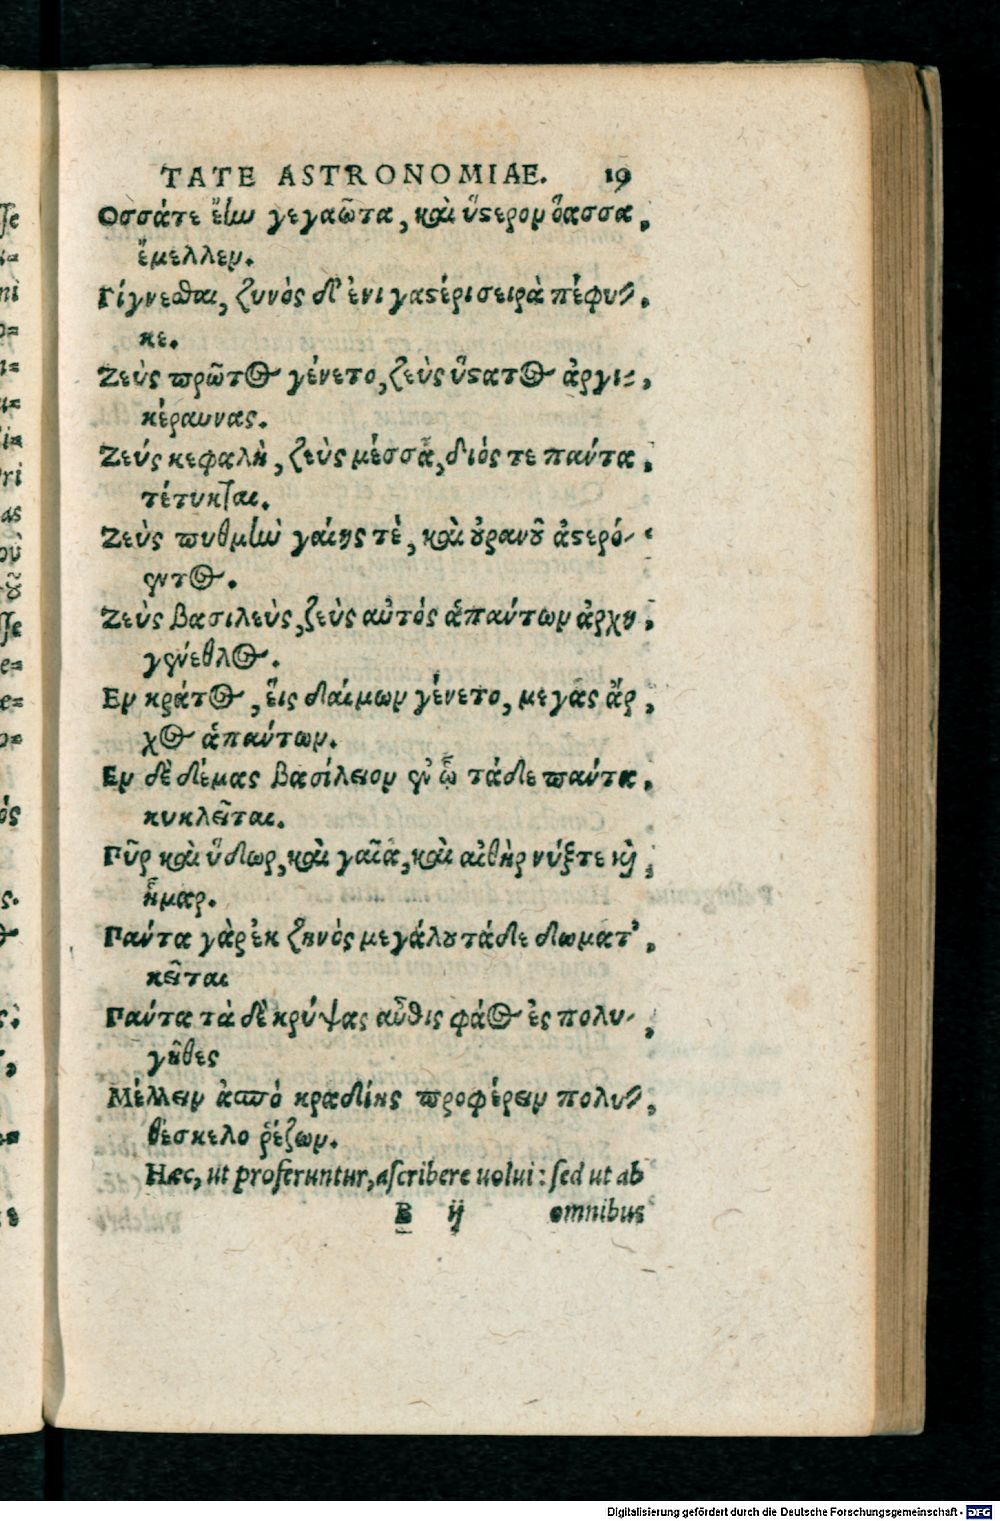 TATE ASTRONOMIAE. 19
Οσσάτε ἔην γεγαῶτα, καὶ ὕστερον ὅασσα,
ἔμελλεν.
Γίγνεσθαι, ζυνὸς δ' ἐνι γαστέρι σειρὰ πέφυ-,
κε.
Ζεὺς πρῶτος γένετο, ζεὺς ὕστατος ἀργι-,
κέραυνας.
Ζεύς κεφαλὴ, ζεὺς μέσσᾶ, διός τε παύτα,
τέτυκται.
Ζεὺς πυθμὴν γαίης τὲ, καὶ οὐρανοῦ ἀστερό-
εντος.
Ζεὺς βασιλεὺς, ζεὺς αὐτός ἁπαύτων ἀρχου,
γενέθλος.
Εν κράτος, εἷς δαίμων γένετο, μεγὰς ἄρ,
χος ἁπαύτων.
Εν δὲ δέμας βασίλειον ἐν ᾧ τάδε παύτα,
κυκλεῖται.
Γῦρ καὶ ὕδωρ, καὶ γαῖά, καὶ αἰθὴρ νύξτε καὶ,
ἦμαρ.
Γαύτα γὰρ ἐκ ζηνὸς μεγάλου τάδε δωματ',
κεῖται
Γαύτα τὰ δὲ κρύψας αὖθις φάος ἐς πολυ-,
γηθὲς
Μέλλειν ἀπὸ κραδίης προφέρειν πολυ-,
θέσκελο ῥέζων.
Hæc, ut proferuntur, ascribere uolui: sed ut ab
B ij omnibus
Digitalisierung gefördert durch die Deutsche Forschungsgemeinschaft - DFG